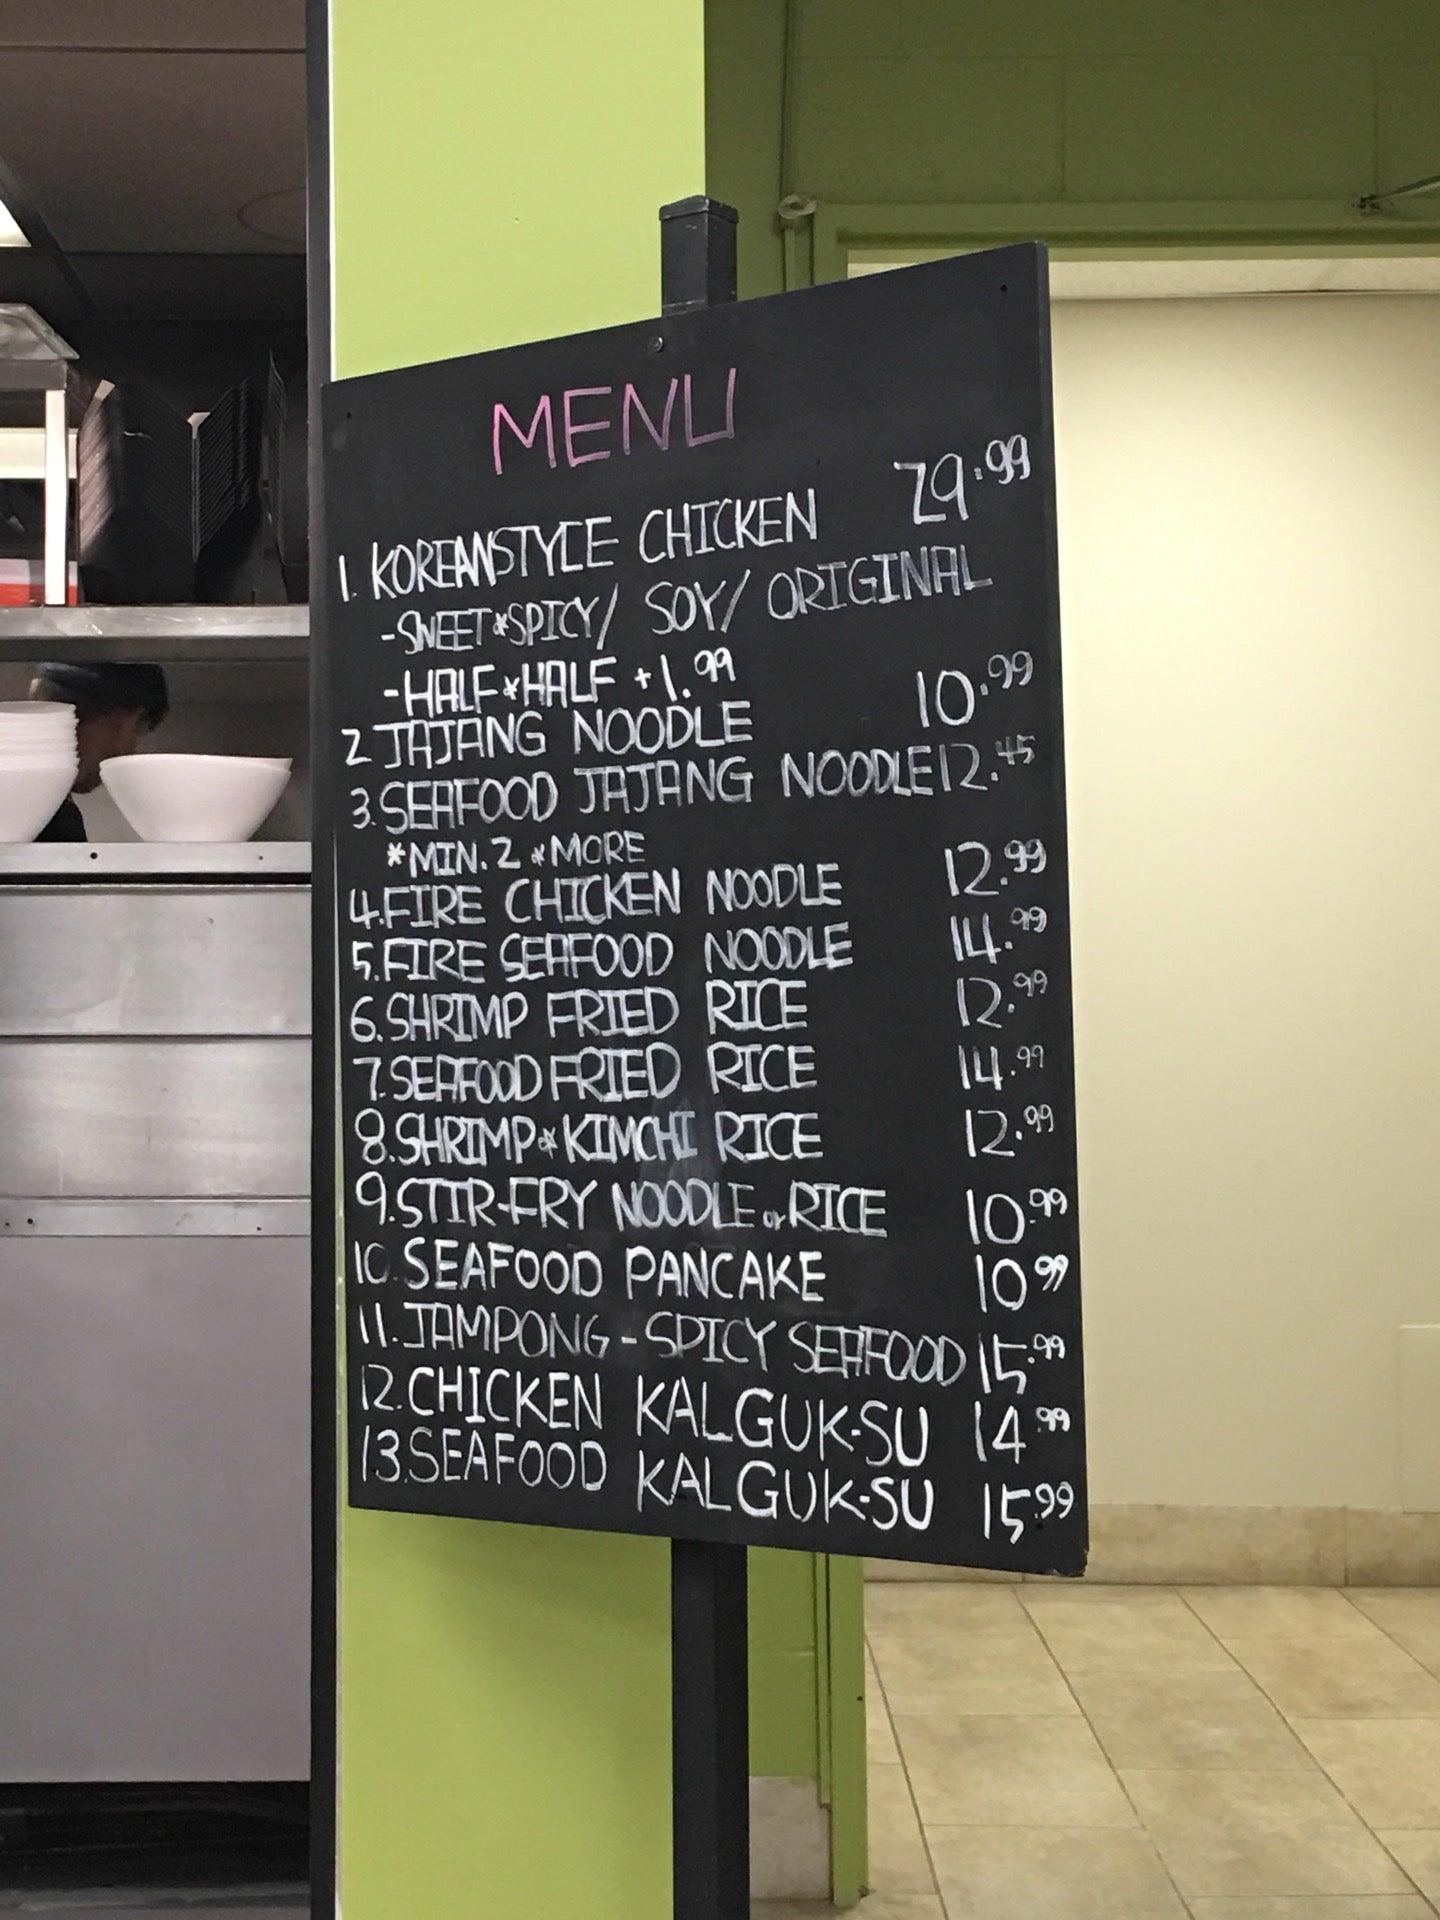 MENU
1. KOREANSTYLE CHICKEN 29.99
-SWEET*SPICY/ SOY/ ORIGINAL
-HALF*HALF +1.99
2 JAJANG NOODLE 10.99
3. SEAFOOD JAJANG NOODLE 12.45
*MIN. 2 *MORE
4. FIRE CHICKEN NOODLE 12.99
5. FIRE SEAFOOD NOODLE 14.99
6. SHRIMP FRIED RICE 12.99
7. SEAFOOD FRIED RICE 14.99
8. SHRIMP*KIMCHI RICE 12.99
9. STIR-FRY NOODLE or RICE 10.99
10. SEAFOOD PANCAKE 10.99
11. JAMPONG - SPICY SEAFOOD 15.99
12. CHICKEN KALGUK-SU 14.99
13. SEAFOOD KALGUK-SU 15.99